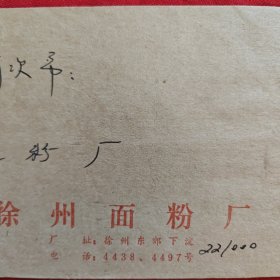 次帚：
粉厂
徐州面粉厂
厂 址：徐州东郊下淀
电 话：4438、4497号
221000